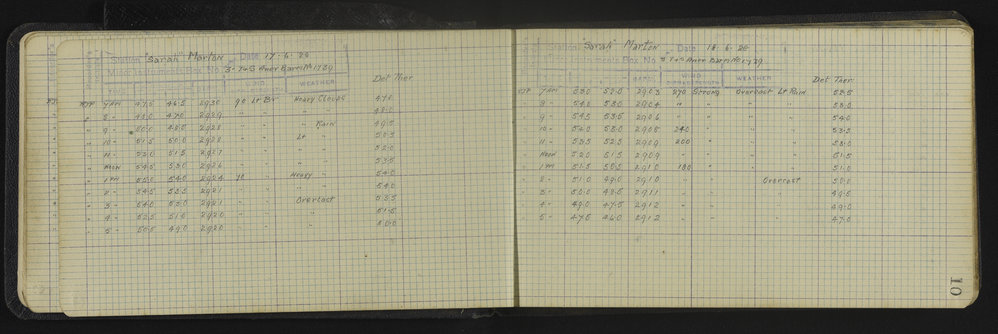 Station "Sarah" Marton Date 17-6-20
Wind Instruments Box No. Aner Baro No 1739
TIME BAROM. WIND WEATHER Det Ther
RTP 7 AM 47.5 46.5 29.30 90 Lt Br Heavy Clouds 47.0
" 8 " 48.0 47.0 29.29 " " " 48.0
" 9 " 50.0 48.0 29.28 " " " Rain 49.5
" 10 " 51.5 50.0 29.28 " " Lt " 50.5
" 11 " 53.0 51.5 29.27 " " " 52.0
" Noon 54.5 53.0 29.26 " " " 53.5
" 1 PM 55.0 54.0 29.24 70 " Heavy " 54.0
" 2 " 54.5 53.5 29.21 " " " 54.0
" 3 " 54.0 53.0 29.21 " " Overcast 53.5
" 4 " 52.5 51.0 29.20 " " " 51.5
" 5 " 50.5 49.0 29.20 " " " 50.0
Station "Sarah" Marton Date 18-6-20
Instruments Box No. Aner Baro No 1739
BAROM. WIND WEATHER Det Ther
RTP 7 AM 53.0 52.0 29.03 270 Strong Overcast Lt Rain 52.5
" 8 " 54.0 53.0 29.04 " " " " 53.0
" 9 " 54.5 53.5 29.06 " " " 54.0
" 10 " 54.0 53.0 29.08 240 " " 53.5
" 11 " 53.5 52.5 29.09 200 " " 53.0
" Noon 52.5 51.5 29.09 " " " 51.5
" 1 PM 51.5 50.5 29.10 180 " " 51.0
" 2 " 51.0 49.0 29.10 " " Overcast 50.0
" 3 " 50.0 48.5 29.11 " " " 49.5
" 4 " 49.0 47.5 29.12 " " " 49.0
" 5 " 47.5 46.0 29.12 " " " 47.0
10